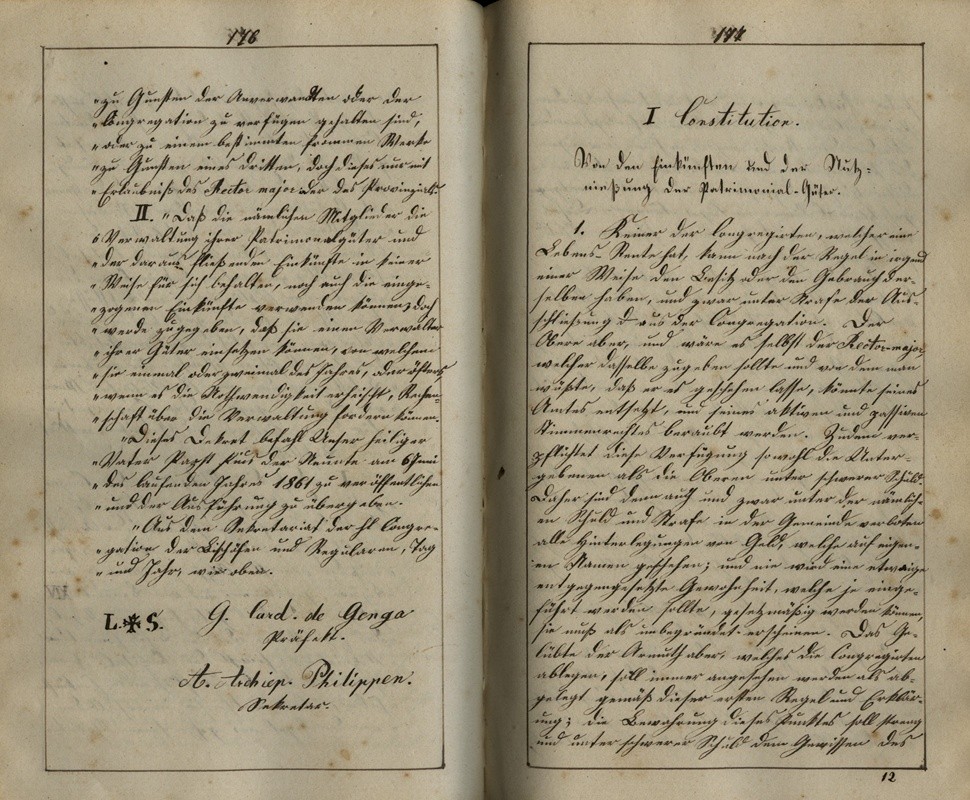 176
"zu Gunsten der Anverwandten oder der
"Congregation zu verfügen gehalten sind,
"oder zu einem bestimmten frommen Werke
"zu Gunsten eines Dritten, doch dieses nur mit
"Erlaubniß des Rector major oder des Provinzials.
II. "Daß die nämlichen Mitglieder die
"Verwaltung ihrer Patrimonalgüter und
"der daraus fließenden Einkünfte in keiner
"Weise für sich behalten, noch auch die einge-
"zogenen Einkünfte verwenden können; doch
"werde zugegeben, daß sie einen Verwalter
"ihrer Güter einsetzen können, von welchem
"sie einmal oder zweimal des Jahres, oder öfters,
"wenn es die Nothwendigkeit erheischt, Rechen-
"schaft über die Verwaltung fordern können.
"Dieses Dekret befahl Unser heiliger
"Vater Papst Pius der Neunte am 6 Juni
"des laufenden Jahres 1861 zu veröffentlichen
"und der Ausführung zu übergeben.
"Aus dem Sekretariat der hl Congre-
"gation der Bischöfen und Regularen, Tag
"und Jahr, wie oben.
L. S. G. Card. de Genga
Präfekt.
A. Archiep. Philippen.
Sekretar.
177
I Constitution.
Von den Einkünften und der Nutz-
nießung der Patrimonial-Güter.
1. Keiner der Congregirten, welcher eine
Lebens-Rente hat, kann nach der Regel in irgend
einer Weise den Besitz oder den Gebrauch der-
selben haben, und zwar unter Strafe der Aus-
schließung aus der Congregation. Der
Obere aber, und wäre es selbst der Rector-major,
welcher dasselbe zugeben sollte und von dem man
wüßte, daß er es geschehen lasse, könnte seines
Amtes entsetzt, und seines aktiven und passiven
Stimmrechtes beraubt werden. Zudem ver-
pflichtet diese Verfügung sowohl die Unter-
gebenen als die Oberen unter schwerer Schuld.
Daher sind denn auch und zwar unter der nämlich-
en Schuld und Strafe in der Gemeinde verboten
alle Hinterlegungen von Geld, welche auf eigen-
en Namen geschehen; und nie wird eine etwaige
entgegengesetzte Gewohnheit, welche je einge-
führt werden sollte, gesetzmäßig werden können,
sie muß als unbegründet erscheinen. Das Ge-
lübte der Armuth aber, welches die Congregirten
ablegen, soll immer angesehen werden als ab-
gelegt gemäß dieser ersten Regel und Erklär-
ung; die Bewahrung dieses Punktes soll streng
und unter schwerer Schuld dem Gewissen des
12